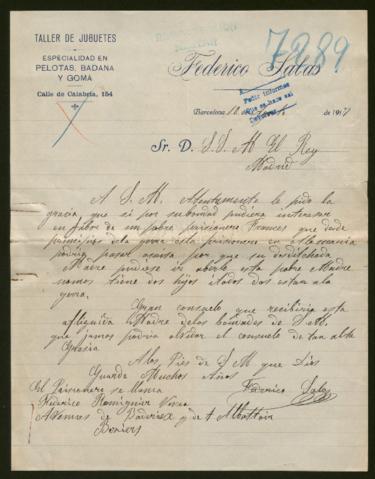 TALLER DE JUGUETES
ESPECIALIDAD EN
PELOTAS, BADANA
Y GOMA
Calle de Calabria, 154
7889
Federico Salas
Pedir informes
Barcelona, 12 de de 1917
Sr. D. S. S. M El Rey
Madrid
A S. M. Atentamente le pido la
gracia, que si por su bondad pudiera interesar
en fabor de un pobre prisionero frances que desde
principios dela gerra está prisionero en Alemania
podria pasar asuiza, por que su desdichada
Madre pudiese ir aberle esta pobre Madre
tiene dos hijos i los dos estan ala
gerra.
Gran consuelo que recibiria esta
afligida Madre delas bondades de S. M.
que jamas podria olvidar el consuelo de tan alta
Gracia
A los Pies de S M que Dios
Guarde Muchos Años
El Prisionero se llama Federico Salas
Federico
Beziers